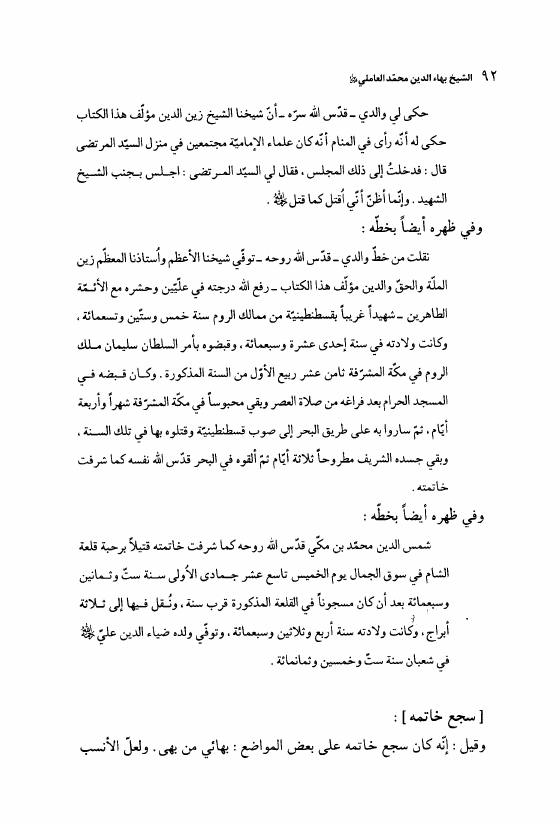 ٩٢ الشيخ بهاء الدين محمّد العاملي ﷫
حكى لي والدي ـ قدّس الله سرّه ـ أنّ شيخنا الشيخ زين الدين مؤلّف هذا الكتاب
حكى له أنّه رأى في المنام أنّه كان علماء الإماميّة مجتمعين في منزل السيّد المرتضى
قال : فدخلتُ إلى ذلك المجلس ، فقال لي السيّد المرتضى : اجلس بجنب الشيخ
الشهيد . وإنّما أظنّ أنّي أُقتل كما قتل ﷫ .
وفي ظهره أيضاً بخطّه :
نقلت من خطّ والدي ـ قدّس الله روحه ـ توفّي شيخنا الأعظم وأُستاذنا المعظّم زين
الملّة والحقّ والدين مؤلّف هذا الكتاب ـ رفع الله درجته في علّيّين وحشره مع الأئمّة
الطاهرين ـ شهيداً غريباً بقسطنطينيّة من ممالك الروم سنة خمس وستّين وتسعمائة ،
وكانت ولادته في سنة إحدى عشرة وسبعمائة ، وقبضوه بأمر السلطان سليمان ملك
الروم في مكّة المشرّفة ثامن عشر ربيع الأوّل من السنة المذكورة . وكان قبضه في
المسجد الحرام بعد فراغه من صلاة العصر وبقي محبوساً في مكّة المشرّفة شهراً وأربعة
أيّام ، ثمّ ساروا به على طريق البحر إلى صوب قسطنطينيّة وقتلوه بها في تلك السنة ،
وبقي جسده الشريف مطروحاً ثلاثة أيّام ثمّ ألقوه في البحر قدّس الله نفسه كما شرفت
خاتمته .
وفي ظهره أيضاً بخطّه :
شمس الدين محمّد بن مكّي قدّس الله روحه كما شرفت خاتمته قتيلاً برحبة قلعة
الشام في سوق الجمال يوم الخميس تاسع عشر جمادى الأولى سنة ستّ وثمانين
وسبعمائة بعد أن كان مسجوناً في القلعة المذكورة قرب سنة ، ونُقل فيها إلى ثلاثة
أبراج ، وكانت ولادته سنة أربع وثلاثين وسبعمائة ، وتوفّي ولده ضياء الدين عليّ ﷫
في شعبان سنة ستّ وخمسين وثمانمائة .
[ سجع خاتمه ] :
وقيل : إنّه كان سجع خاتمه على بعض المواضع : بهائي من بهى . ولعلّ الأنسب